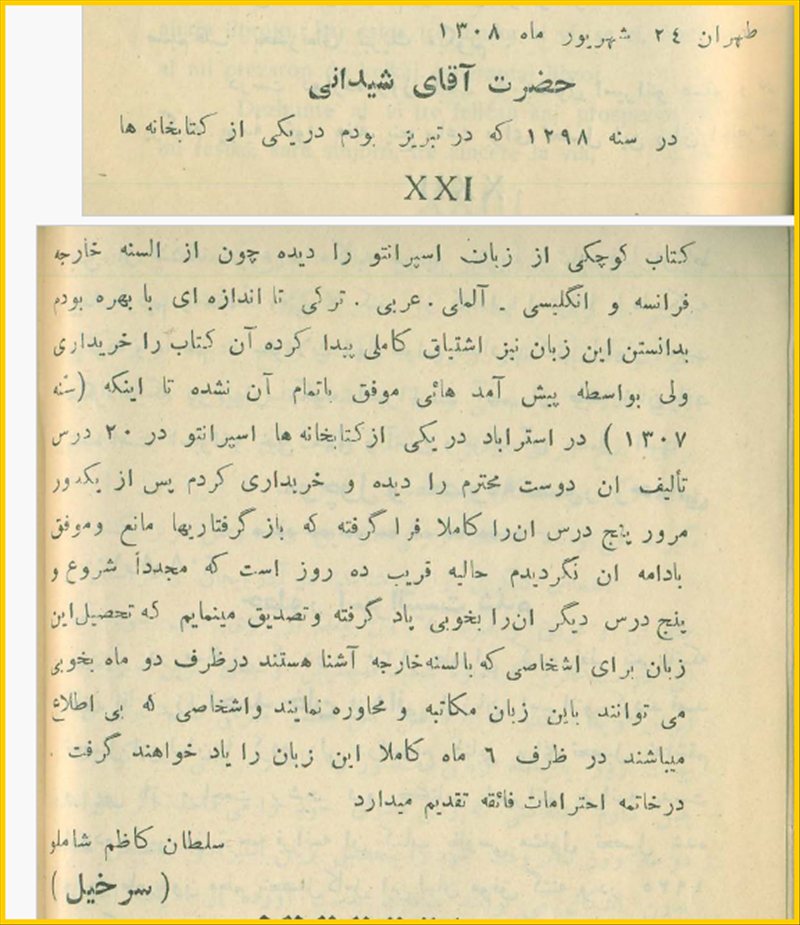 طهران ٢٤ شهریور ماه ١٣٠٨
حضرت آقای شیدانی
در سنه ١٢٩٨ که در تبریز بودم در یکی از کتابخانه ها
XXI
کتاب کوچکی از زبان اسپرانتو را دیده چون از السنه خارجه
فرانسه و انگلیسی ـ آلمانی . عربی . ترکی تا اندازه ای با بهره بودم
بدانستن این زبان نیز اشتیاق کاملی پیدا کرده آن کتاب را خریداری
ولی بواسطه پیش آمد هائی موفق باتمام آن نشده تا اینکه (سنه
١٣٠٧ ) در استراباد در یکی ازکتابخانه ها اسپرانتو در ٢٠ درس
تألیف ان دوست محترم را دیده و خریداری کردم پس از یکدور
مرور پنج درس ان‌را کاملا فرا گرفته که باز گرفتاریها مانع وموفق
بادامه ان نگردیدم حالیه قریب ده روز است که مجدداً شروع و
پنج درس دیگر ان‌را بخوبی یاد گرفته وتصدیق مینمایم که تحصیل‌این
زبان برای اشخاصی که بالسنه‌خارجه آشنا هستند درظرف دو ماه بخوبی
می توانند باین زبان مکاتبه و محاوره نمایند واشخاصی که بی اطلاع
میباشند در ظرف ٦ ماه کاملا این زبان را یاد خواهند گرفت .
درخاتمه احترامات فائقه تقدیم میدارد
سلطان کاظم شاملو
( سرخیل )